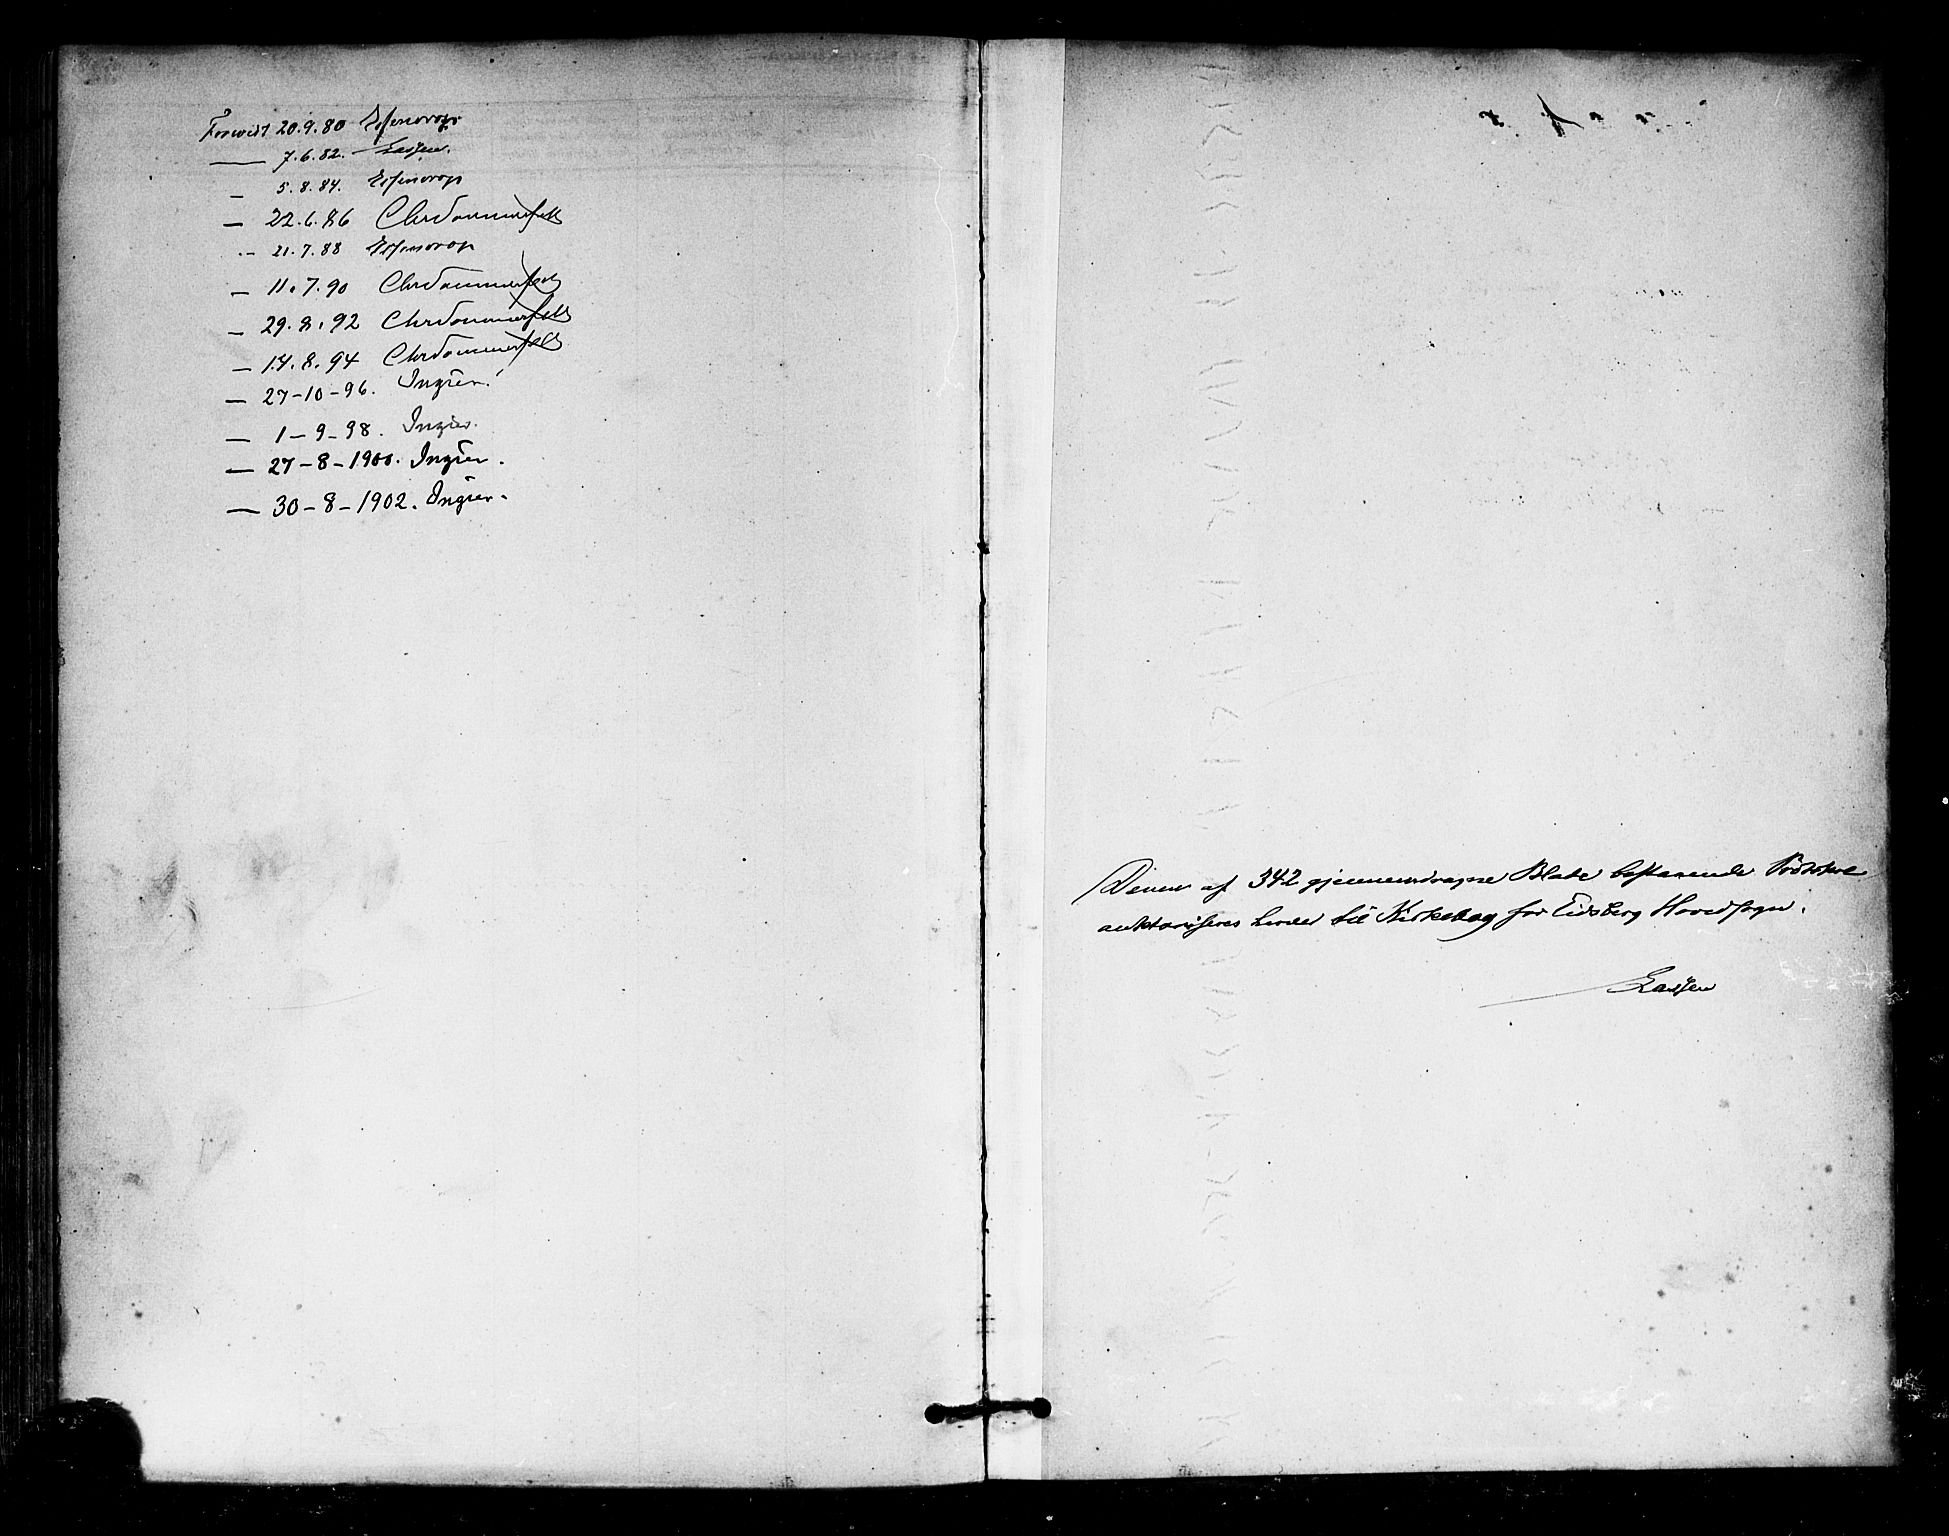 Forevist 20.9.80 Essendrop
— 7.6.82. Lassen.
— 5.8.84. Essendrop
— 22.6.86 Chr Sommerfelt
— 21.7.88 Essendrop
— 11.7.90 Chr Sommerfelt
— 29.8.92 Chr Sommerfelt
— 14.8.94 Chr Sommerfelt
— 27-10-96. Ingier.
— 1-9-98. Ingier.
— 27-8-1900. Ingier.
— 30-8-1902. Ingier.
Denne af 342 gjennemdragne Blade bestaaende Protokol
auktoriseres herved til Kirkebog for Eidsberg Hovedsogn.
Lassen